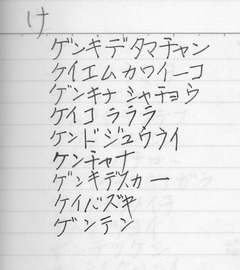 け
ゲンキデタマチャン
ケイエムカワイーコ
ゲンキナシャチョウ
ケイコラララ
ケンドジュウライ
ケンチャナ
ゲンキデスカー
ケイバズキ
ゲンテン